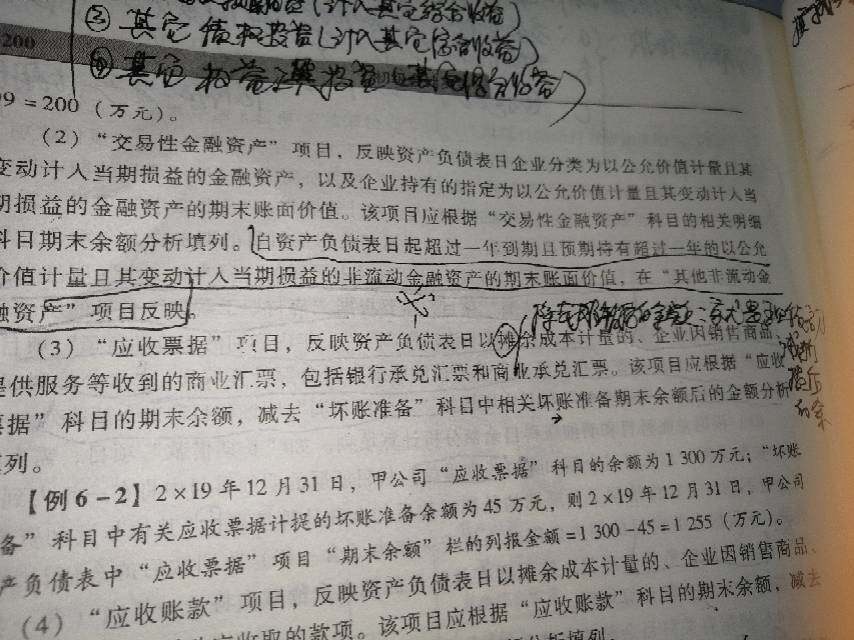 ③ 其它债权投资(计入其它综合收益)
200
④ 其它权益工具投资
99 = 200（万元）。
（2）“交易性金融资产”项目，反映资产负债表日企业分类为以公允价值计量且其
变动计入当期损益的金融资产，以及企业持有的指定为以公允价值计量且其变动计入当
期损益的金融资产的期末账面价值。该项目应根据“交易性金融资产”科目的相关明细
科目期末余额分析填列。自资产负债表日起超过一年到期且预期持有超过一年的以公允
价值计量且其变动计入当期损益的非流动金融资产的期末账面价值，在“其他非流动金
融资产”项目反映。
（3）“应收票据”项目，反映资产负债表日以摊余成本计量的、企业因销售商品、
提供服务等收到的商业汇票，包括银行承兑汇票和商业承兑汇票。该项目应根据“应收
票据”科目的期末余额，减去“坏账准备”科目中相关坏账准备期末余额后的金额分析
填列。
【例6－2】2×19年12月31日，甲公司“应收票据”科目的余额为1 300万元；“坏账
备”科目中有关应收票据计提的坏账准备余额为45万元，则2×19年12月31日，甲公司
产负债表中“应收票据”项目“期末余额”栏的列报金额＝1 300－45＝1 255（万元）。
（4）“应收账款”项目，反映资产负债表日以摊余成本计量的、企业因销售商品、
收取的款项。该项目应根据“应收账款”科目的期末余额，减去
分析填列。